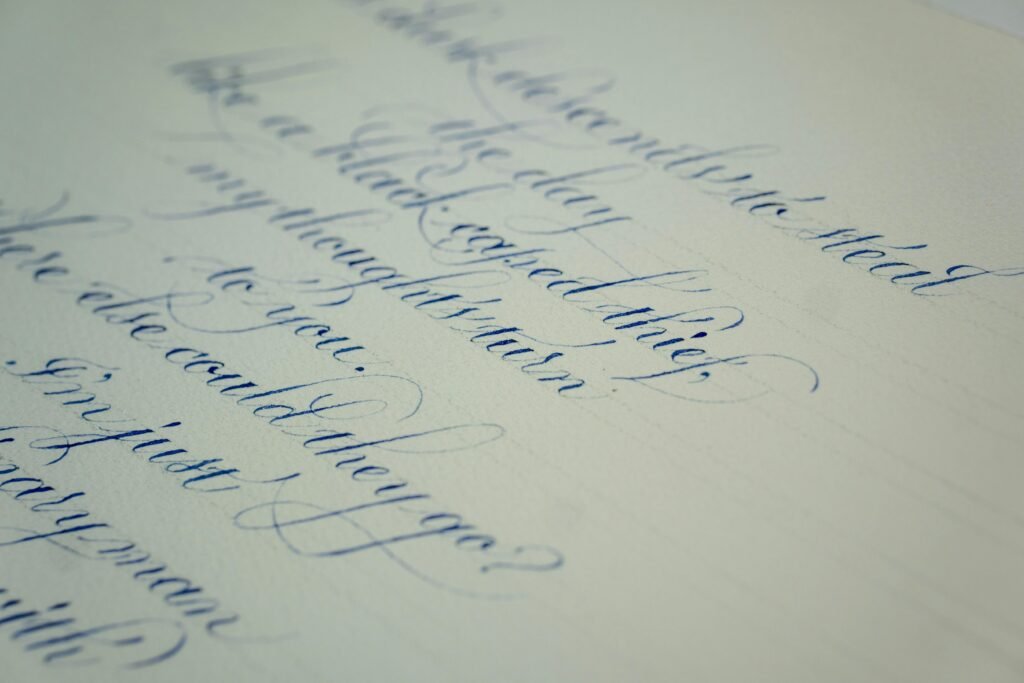 descends to steal
the day
like a black caped thief,
my thoughts turn
to you.
where else could they go?
I'm just
man
with